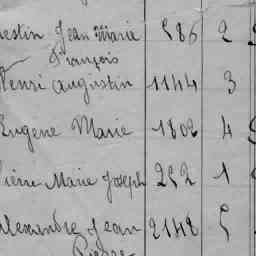 estin Jean Marie 586 2
François
Henri Augustin 1144 3
Eugene Marie 1802 4
Pierre Marie Joseph 252 1
Alexandre Jean 2142 5
Pierre